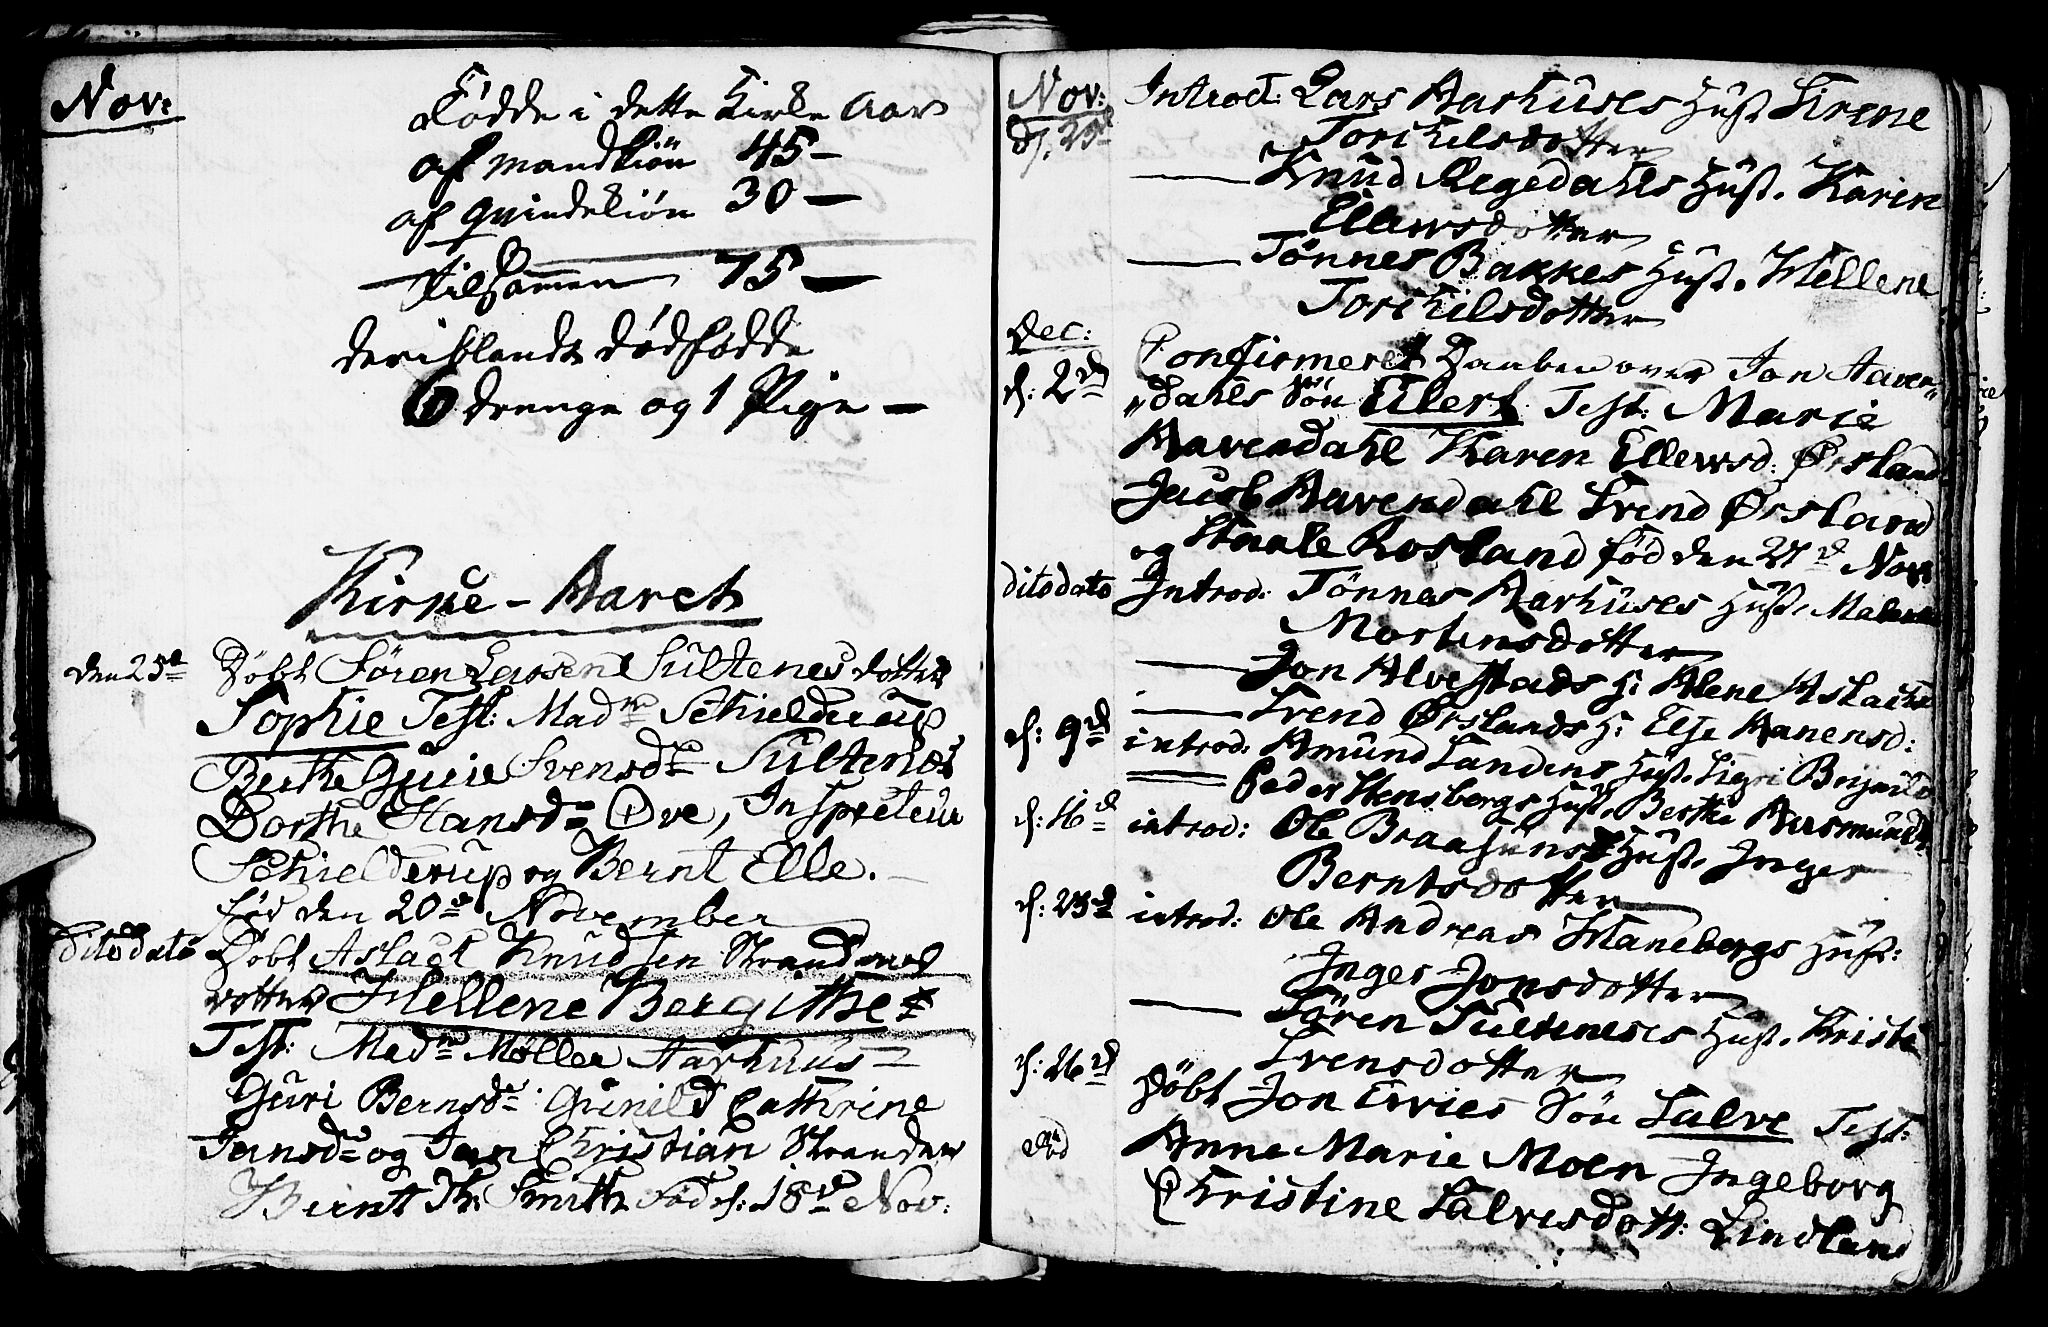 Nov:
Fødde i dette Kirke Aar
af Mandkiön 45 -
af Qvindekiön 30 -
Tilsammen 75 -
deriblandt dødfødde
6 drenge og 1 Pige -
Kirke-Aaret
den 25de Döbt Sören Larsens Sultenes dotter
Sophie Test: Madme Schielderup
Berthe Gurie Svensdr Sultenes
Dorthe Hansd= Øve, Inspecteur
Schielderup og Bernt Elle.
fød den 20de November
Dito dato Döbt Aslack Knudsen Strandens
dotter Hellene Bergithe
Test: Madme Möller Aarhuus
Guri Bernsdr: Gunild Cathrine
Jansdr og Jan Christian Stranden
Bernt Th. Smith Född d: 18de Nov:
Nov: Introd: Lars Aarhuses Hust. Sirene
d. 25d Torkilsdotter
— Knud Regedahls Hust. Karen
Ellewsdotter
— Tönnes Bakkes Hust. Hellene
Torkilsdotter
Dec:
d: 2den Confirmeret Daaben over Jon Aaven-
„dahls Sön Elert Test: Marie
Aavendahl Karen Ellewsd: Ørsland
Jacob Aavendahl Svend Ørsland
og Staale Rosland fød den 27d Nov
dito dato Introd: Tönnes Aarhuses Hust. Malene
Mortensdotter
— Jon Alvestads H: Alene Aslachsd
— Svend Ørslands H: Else Aanensd:
d: 9de introd: Amund Landens Hust. Sigri
Peder Hensbergs Hust. Berthe Aasmunds
d: 16de introd: Ole Hust. Inger
Berntsdotter
d: 23de introd: Ole Andreas Hanebergs Hust:
Inger Jonsdotter
— Sören Sulteneses Hust. Kristi
Svensdotter
d: 26de Döbt Jon Ervies Sön Salve Test:
Anne Marie Moen Ingeborg
Christine Salvesdott: Lindland